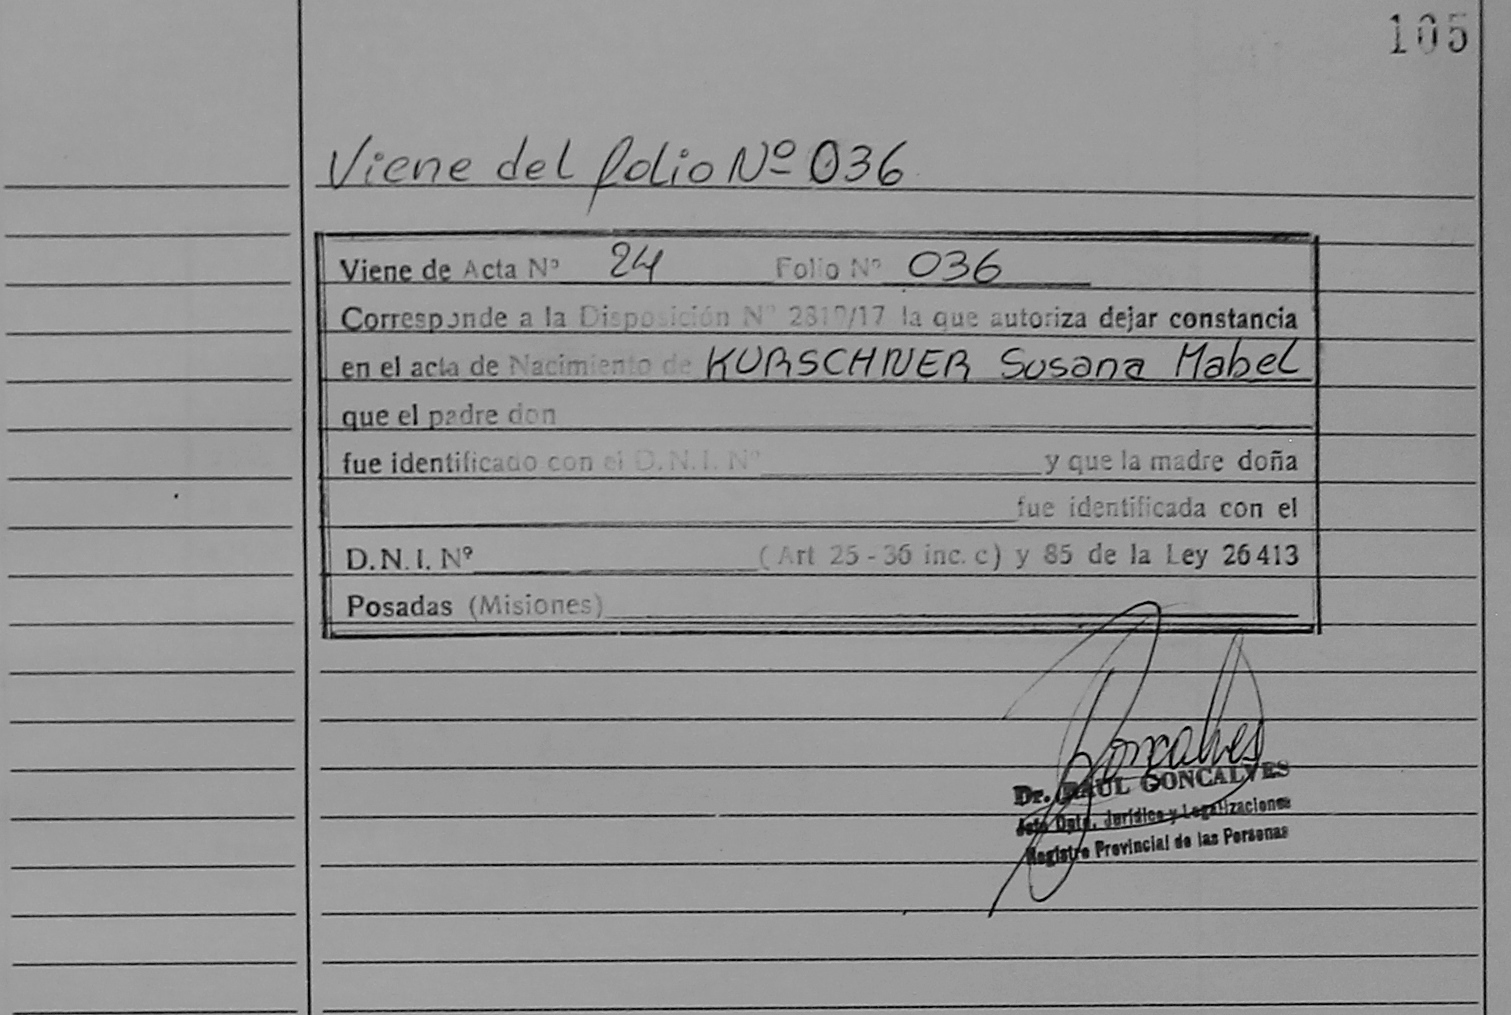 105
Viene del folio Nº 036
Viene de Acta Nº 24 Folio Nº 036
Corresponde a la Disposición Nº 2819/17 la que autoriza dejar constancia
en el acta de Nacimiento de KURSCHNER Susana Mabel
que el padre don
fue identificado con el D.N.I. Nº y que la madre doña
fue identificada con el
D.N.I. Nº (Art 25 - 36 inc. c) y 85 de la Ley 26413
Posadas (Misiones)
Goncalves
Dr. RAUL GONCALVES
Jefe Dpto. Jurídico y Legalizaciones
Registro Provincial de las Personas